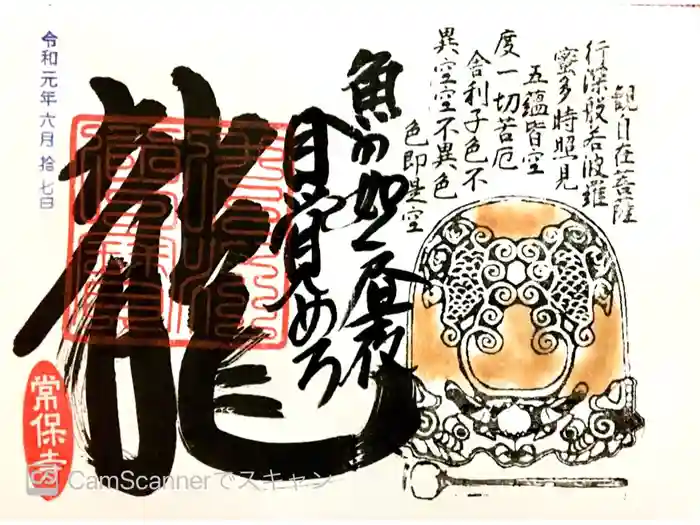 観自在菩薩
行深般若波羅
蜜多時照見
五蘊皆空
度一切苦厄
舎利子色不
異空空不異色
色即是空
魚の如く昼夜
目覚めろ
龍
令和元年六月拾七日
常保寺
CamScannerでスキャン